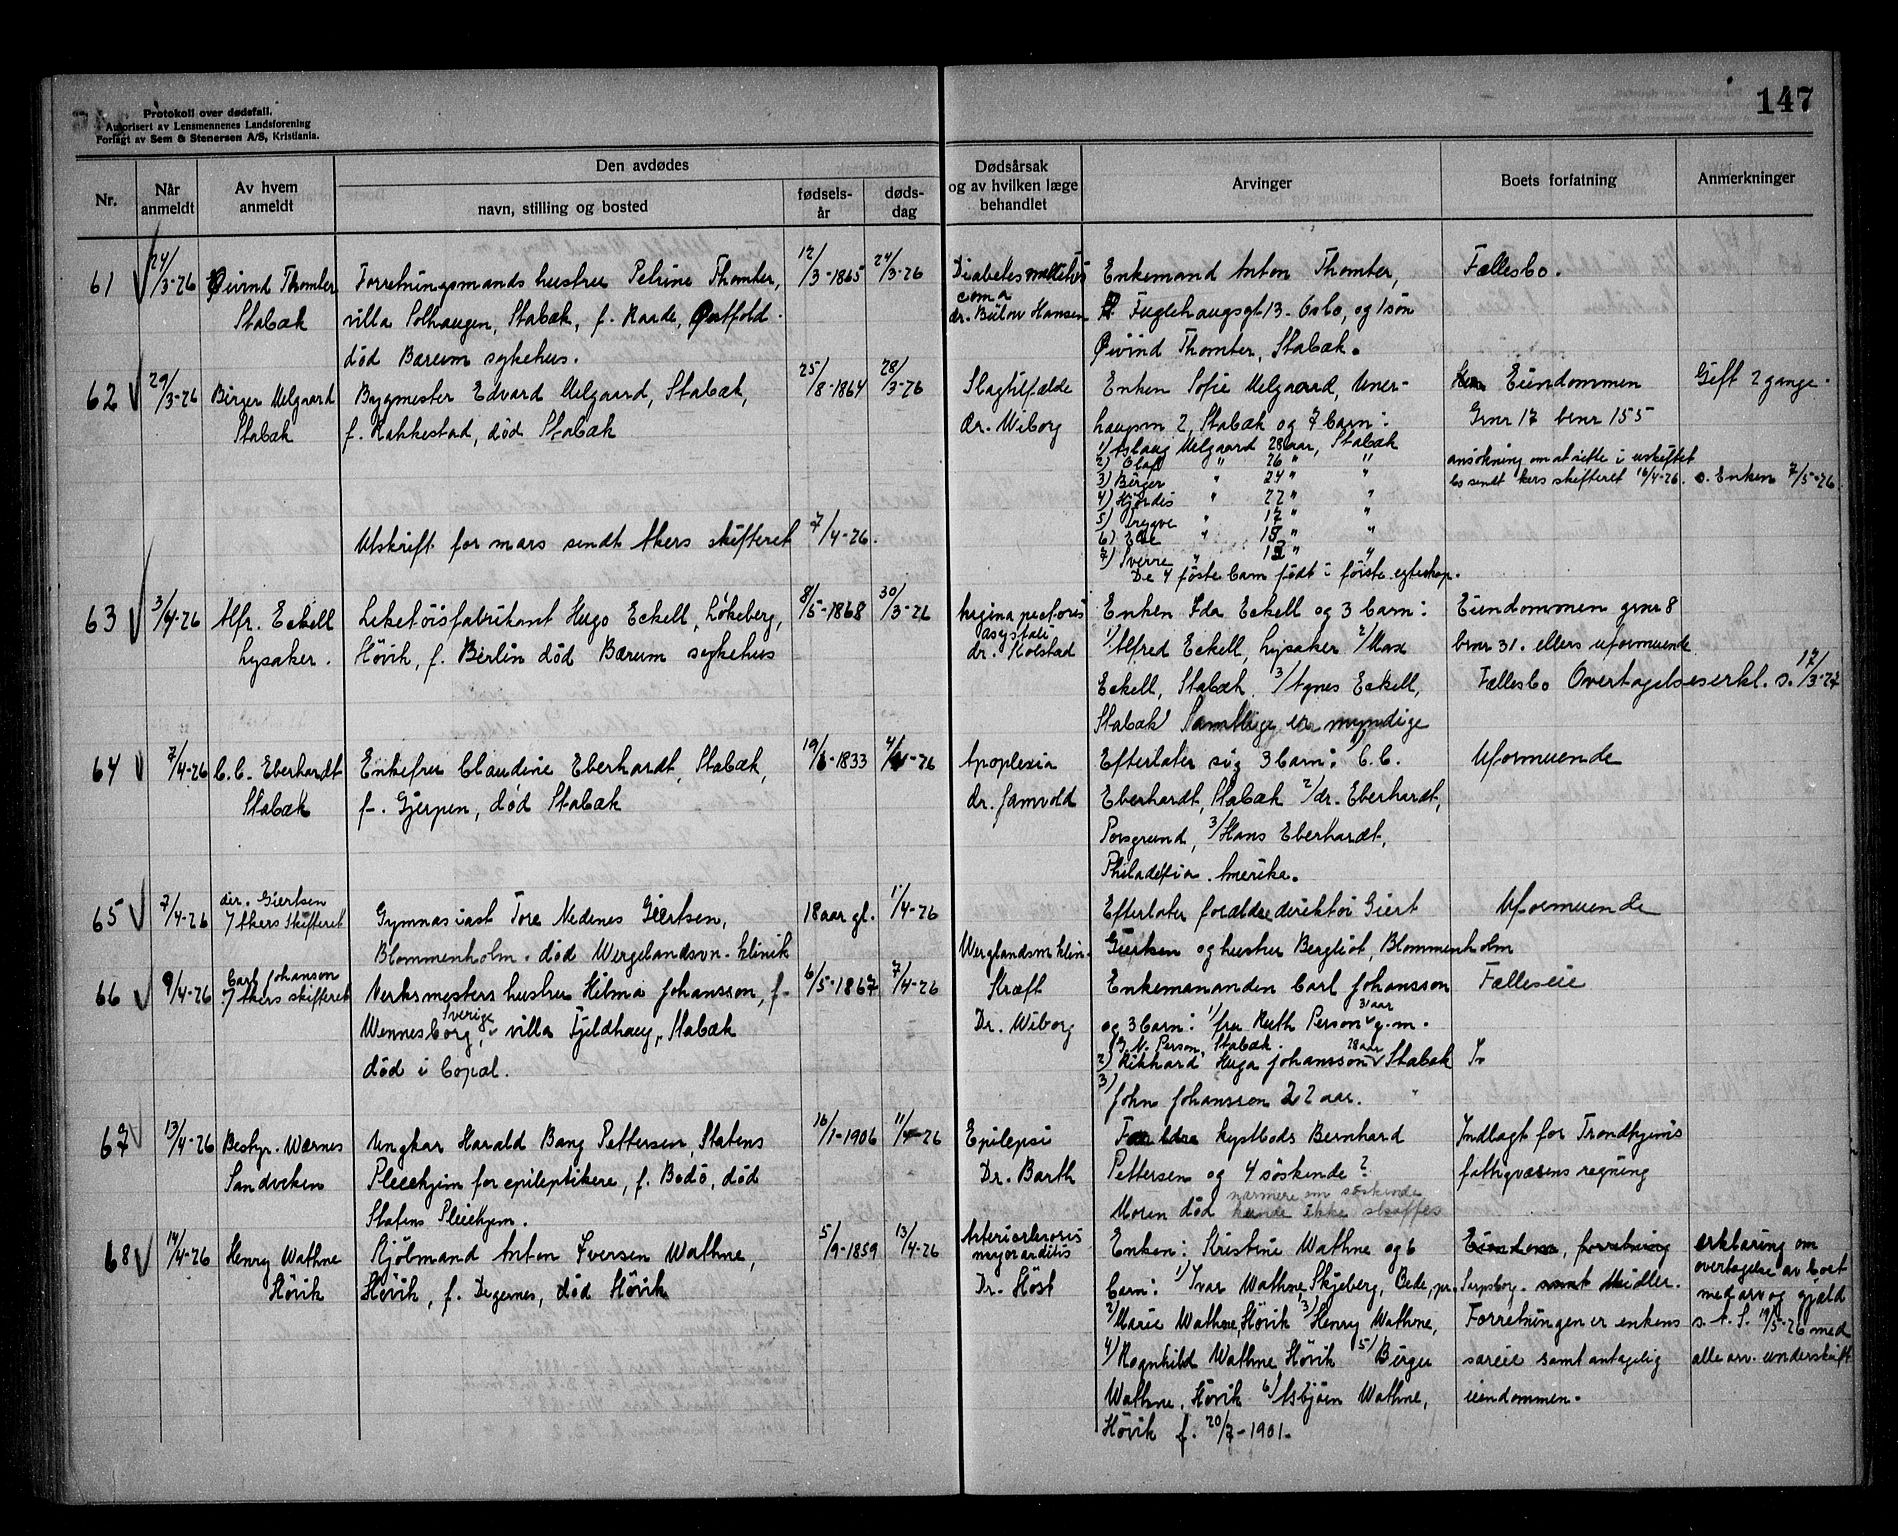 147
Protokoll over dødsfall.
Autorisert av Lensmennenes Landsforening
Forlagt av Sem & Stenersen A/S, Kristiania.
Nr.
Når anmeldt
Av hvem anmeldt
Den avdødes
navn, stilling og bosted
fødsels-år
døds-dag
Dødsårsak og av hvilken læge behandlet
Arvinger
Boets forfatning
Anmerkninger
61 24/3-26 Øivind Thomter Forretningsmands hustru Petrine Thomter, 12/3-1865 24/3-26 Diabetes mellitus Enkemand Anton Thomter, Fællesbo.
Stabæk villa Solhaugen, Stabæk, f. Raade, Østfold. coma dr. Bülow Hansen Fuglehaugsgt 13. Oslo, og 1 søn
død Bærum sykehus. Øivind Thomter, Stabæk.
62 29/3-26 Birger Melgaard Bygmester Edvard Melgaard, Stabæk, 25/8-1864 28/3-26 Slagtilfælde Enken Sofie Melgaard, Uner- Eiendommen Gift 2 gange.
Stabæk f. Rakkestad, død Stabæk dr. Wiborg haugvn 2, Stabæk og 7 barn: Gnr 17 bnr 155
1) Aslaug Melgaard 28 aar, Stabæk
2) Olaf " 26 " " ansøkning om at sitte i uskiftet
3) Birger " 24 " " bo sendt Akers skifteret 16/4-26. s. Enken 7/5-26
4) Hjørdis " 22 " "
5) Trygve " 17 " "
Utskrift for mars sendt Akers skifteret 7/4-26. 6) " 15 " "
7) Sverre " 12 " "
De 4 føste barn født i første egteskap.
63 3/4-26 Alfr. Eckell Leketøisfabrikant Hugo Eckell, Løkeberg, 8/5-1868 30/3-26 Angina pectoris Enken Ida Eckell og 3 barn: Eiendommen gnr 8
Lysaker. Høvik, f. Berlin død Bærum sykehus asystoli dr. Kolstad 1/ Alfred Eckell, Lysaker 2/ Max bnr 31. ellers uformuende
Eckell, Stabæk. 3/ Agnes Eckell, Fællesbo Overtagelseserkl. s. 17/3-27
Stabæk) Samtlige er myndige
64 7/4-26 C. C. Eberhardt Enkefru Claudine Eberhardt, Stabæk, 19/6-1833 4/4-26 Apoplexia Efterlater sig 3 barn: C. C. Uformuende
Stabæk f. Gjerpen, død Stabæk dr. Jamvold Eberhardt, Stabæk 2/ dr. Eberhardt,
Porsgrund, 3/ Hans Eberhardt,
Philadelfia. Amerika.
65 7/4-26 dir. Giertsen Gymnasiast Tore Nedenes Giertsen, 18 aar gl. 1/4-26 Efterlater forældre direktør Giert Uformuende
7 Akers Skifteret Blommenholm. død Wergelandsvn. klinik Werglandsvn klin. Giertsen og hustru Bergliot, Blommenholm
66 9/4-26 Carl Johanson Verksmesters hustru Hilma Johansson, f. 6/5-1867 7/4-26 Kræft Enkemananden Carl Johansson Fælleseie
7 Akers skifteret Wennesborg, Sverige villa Fjeldhaug, Stabæk Dr. Wiborg og 3 barn: 1/ fru Ruth Person 31 aar g.m.
død i Copal. G. N. Person, Stabæk.
2) Rikhard Hugo Johansson 28 aar Stabæk
3) John Johanssen 22 aar. "
67 13/4-26 Bestyr. Wærnes Ungkar Harald Bang Pettersen, Statens 16/1-1906 11/4-26 Epilepsi Forældre kystlods Bernhard Indlagt for Trondhjems
Sandviken Pleiehjem for epileptikere, f. Bodø, død Dr. Barth Pettersen og 4 søskende? fattigvæsens regning
Statens Pleiehjem. Moren død nærmere om søskende kunde ikke skaffes
68 14/4-26 Henry Wathne Kjøbmand Anton Iversen Wathne, 5/9-1859 13/4-26 Arteriosklerosis Enken: Kristine Wathne og 6 Eiendom, forretning erklæring om
Høvik Høvik, f. Degernes, død Høvik myocarditis Dr. Høst barn: 1) Ivar Wathne, Skjeberg, Oede, pr. Sarpsborg. samt Midler. overtagelse av boet
2) Marie Wathne, Høvik 3) Henry Wathne, Forretningen er enkens med arv og gjæld
4) Ragnhild Wathne Høvik 5) Birger særeie samt antagelig s. A. S. 19/5-26 med
Wathne, Høvik 6) Asbjørn Wathne, eiendommen. alle arv. underskrift
Høvik f. 20/7-1901.